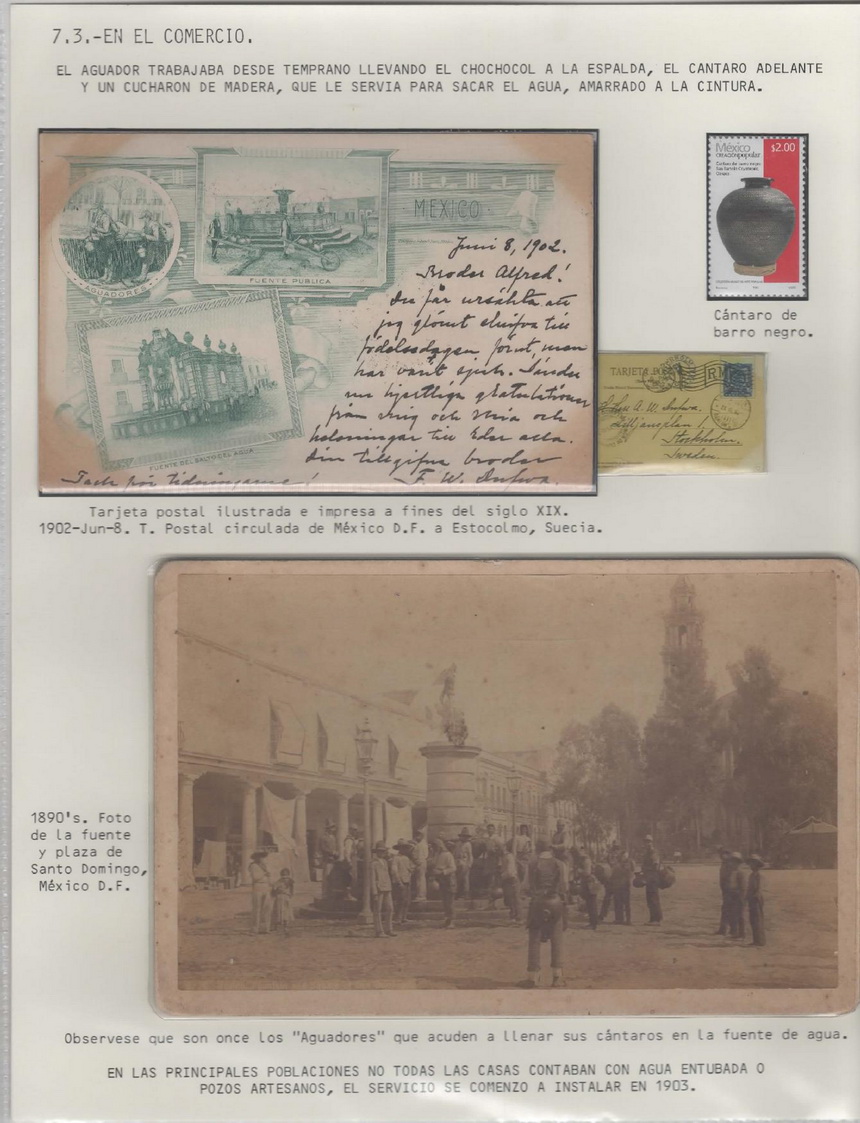 7.3.-EN EL COMERCIO.
EL AGUADOR TRABAJABA DESDE TEMPRANO LLEVANDO EL CHOCHOCOL A LA ESPALDA, EL CANTARO ADELANTE
Y UN CUCHARON DE MADERA, QUE LE SERVIA PARA SACAR EL AGUA, AMARRADO A LA CINTURA.
AGUADORES
FUENTE PUBLICA
MEXICO
FUENTE DEL SALTO EL AGUA
Juni 8, 1902.
Broder Alfred!
Du får ursäkta att
jag glömt skrifva till
födelsedagen förut, men
har varit sjuk. Sänder
nu hjertliga gratulationer
från mig och Mia och
helsningar till Eder alla.
din tillgifna broder
F. W.
Tack för tidningarne!
México
creaciónpopular
$2.00
Cántaro de
barro negro.
TARJETA
A. W.
Lilljansplan 1
Stockholm.
Sweden.
Tarjeta postal ilustrada e impresa a fines del siglo XIX.
1902-Jun-8. T. Postal circulada de México D.F. a Estocolmo, Suecia.
1890's. Foto
de la fuente
y plaza de
Santo Domingo,
México D.F.
Observese que son once los "Aguadores" que acuden a llenar sus cántaros en la fuente de agua.
EN LAS PRINCIPALES POBLACIONES NO TODAS LAS CASAS CONTABAN CON AGUA ENTUBADA O
POZOS ARTESANOS, EL SERVICIO SE COMENZO A INSTALAR EN 1903.